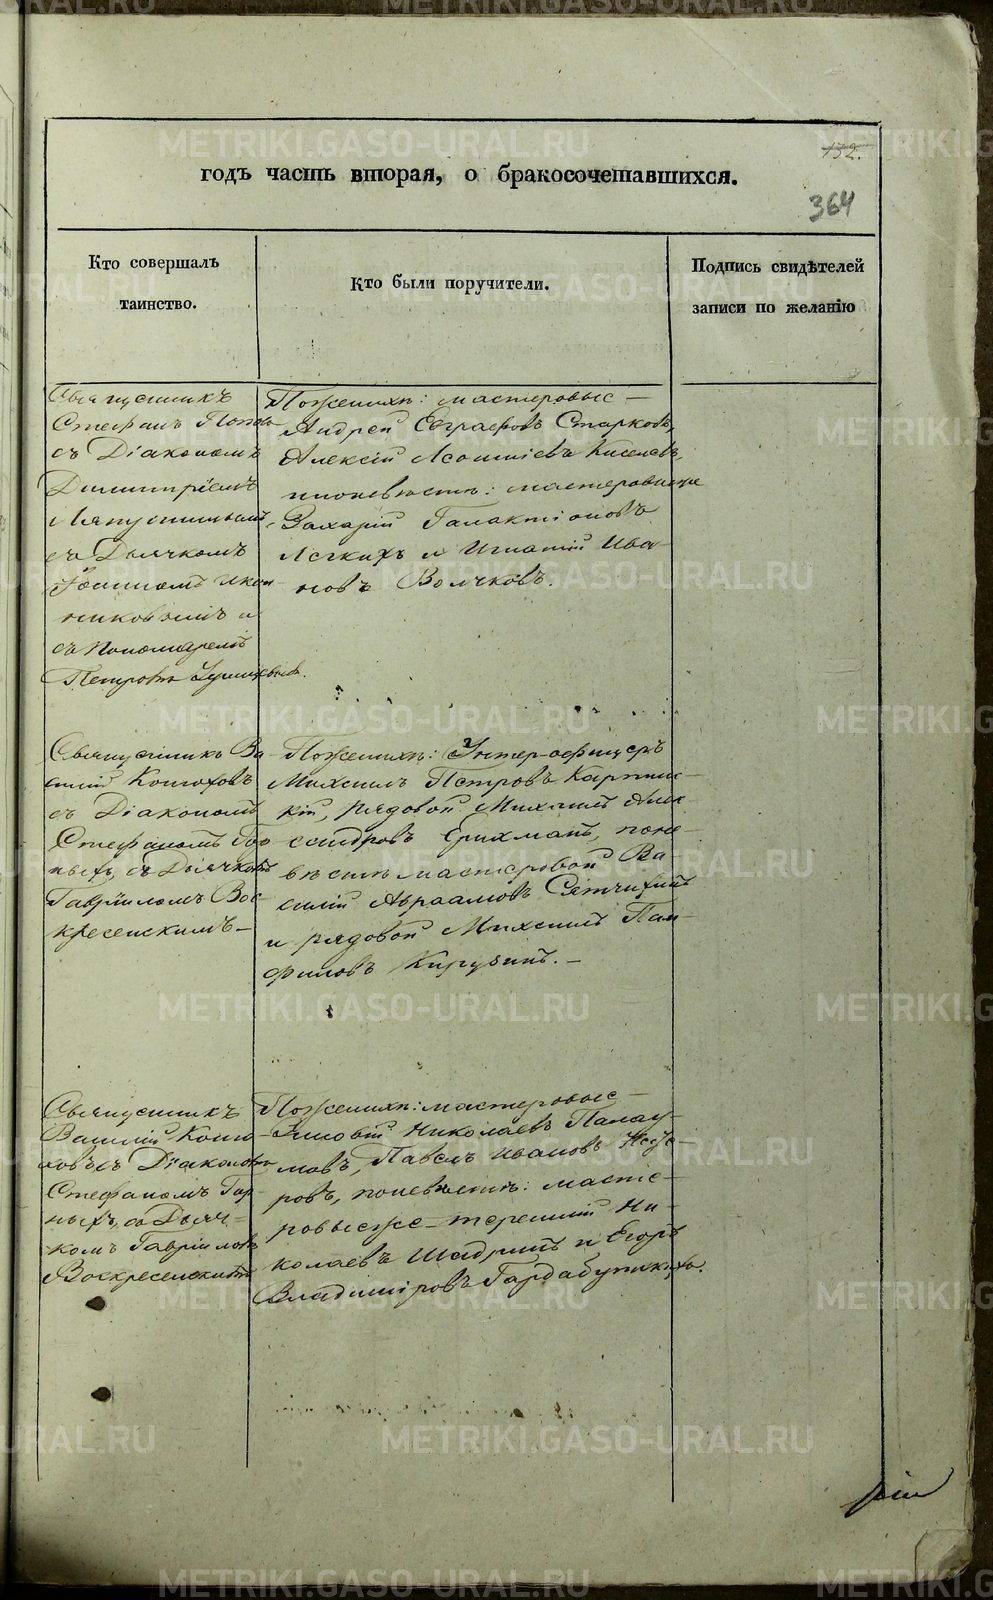 132.
годъ часть вторая, о бракосочетавшихся.
364
Кто совершалъ
таинство.
Кто были поручители.
Подпись свидѣтелей
записи по желанію
Священникъ
Стефанъ Попов
съ Діакономъ
Димитріемъ
Ляпустинымъ,
съ Дьячкомъ
Іоанномъ Икон-
никовымъ и
съ Пономаремъ
Петромъ
По женихѣ: мастеровые –
Андрей Евграфовъ Старковъ,
Алексій Киселевъ,
по невѣстѣ: мастеровые
Захарій Галактіоновъ
Легкихъ и Игнатій Ива-
новъ Волчковъ.
Священникъ Ва-
силій Конюховъ
съ Діакономъ
Стефаномъ Гор-
ныхъ, съ Дьячкомъ
Гавріиломъ Вос-
кресенскимъ –
По женихѣ: Унтер-офицеръ
Михаилъ Петровъ Карпин-
кій, рядовой Михаилъ Алек-
сандровъ Ерихманъ, по не-
вѣстѣ мастеровой Ва-
силій Авраамовъ
и рядовой Михаилъ Пам-
филовъ Кирузинъ. –
Священникъ
Василій Коню-
ховъ съ Діакономъ
Стефаномъ Гор-
ныхъ, съ Дьяч-
комъ Гавріиломъ
Воскресенскимъ
По женихѣ: мастеровые –
Николаевъ Палау-
мовъ, Павелъ Ивановъ
ровъ, по невѣстѣ: масте-
ровые же Терентій Ни-
колаевъ Шадринъ и Егоръ
Владиміровъ Гардабутскихъ.
METRIKI.GASO-URAL.RU